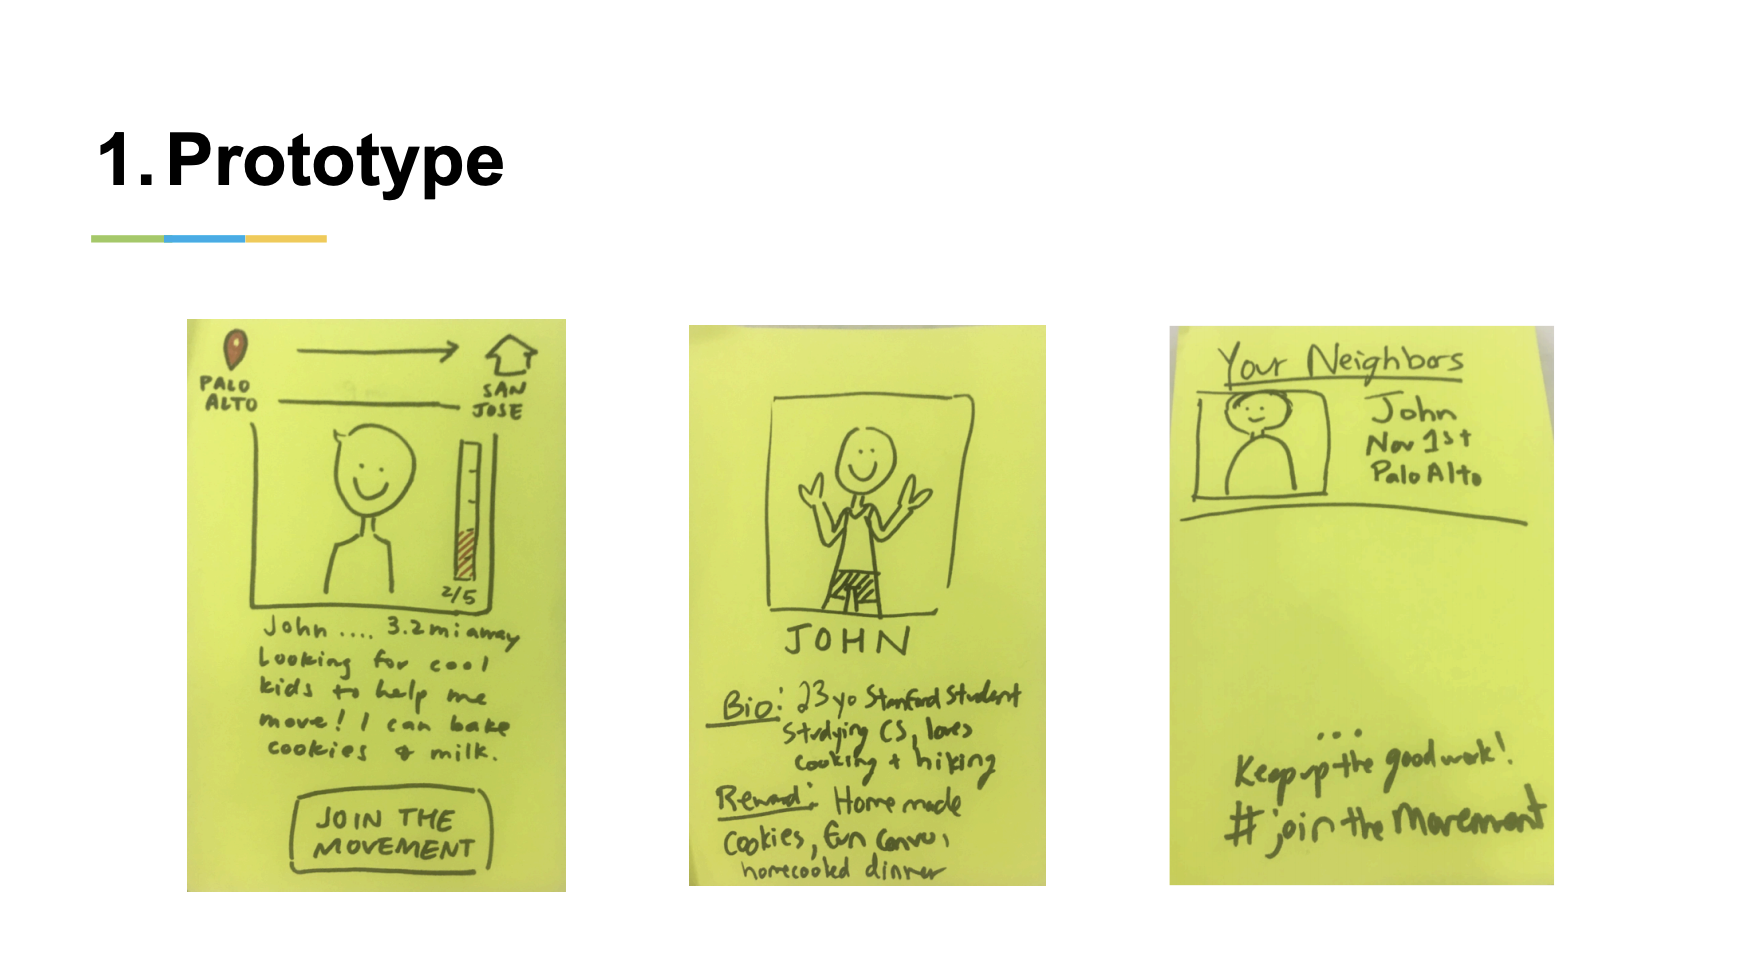 1. Prototype
PALO
ALTO
SAN
JOSE
2/5
John .... 3.2 mi away
Looking for cool
kids to help me
move! I can bake
cookies & milk.
JOIN THE
MOVEMENT
JOHN
Bio: 23 yo Stanford Student
Studying CS, loves
cooking + hiking
Reward: Home made
Cookies, fun convo,
homecooked dinner
Your Neighbors
John
Nov 1st
Palo Alto
...
Keep up the good work!
#jointheMovement